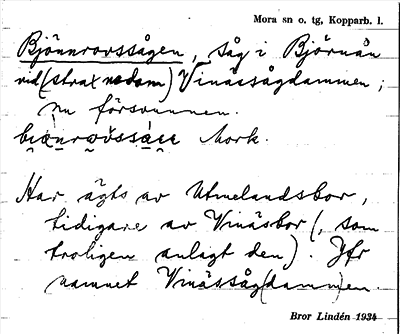 Mora sn o. tg, Kopparb. l.
Björnrovssågen, såg i Björnån
vid (strax nedom) Vinässågdammen;
nu försvunnen.
Mork.
Har ägts av Utmelandsbor,
tidigare av Vinäsbor (, som
troligen anlagt den). Jfr
namnet Vinässåg(damm)en.
Bror Lindén 1934